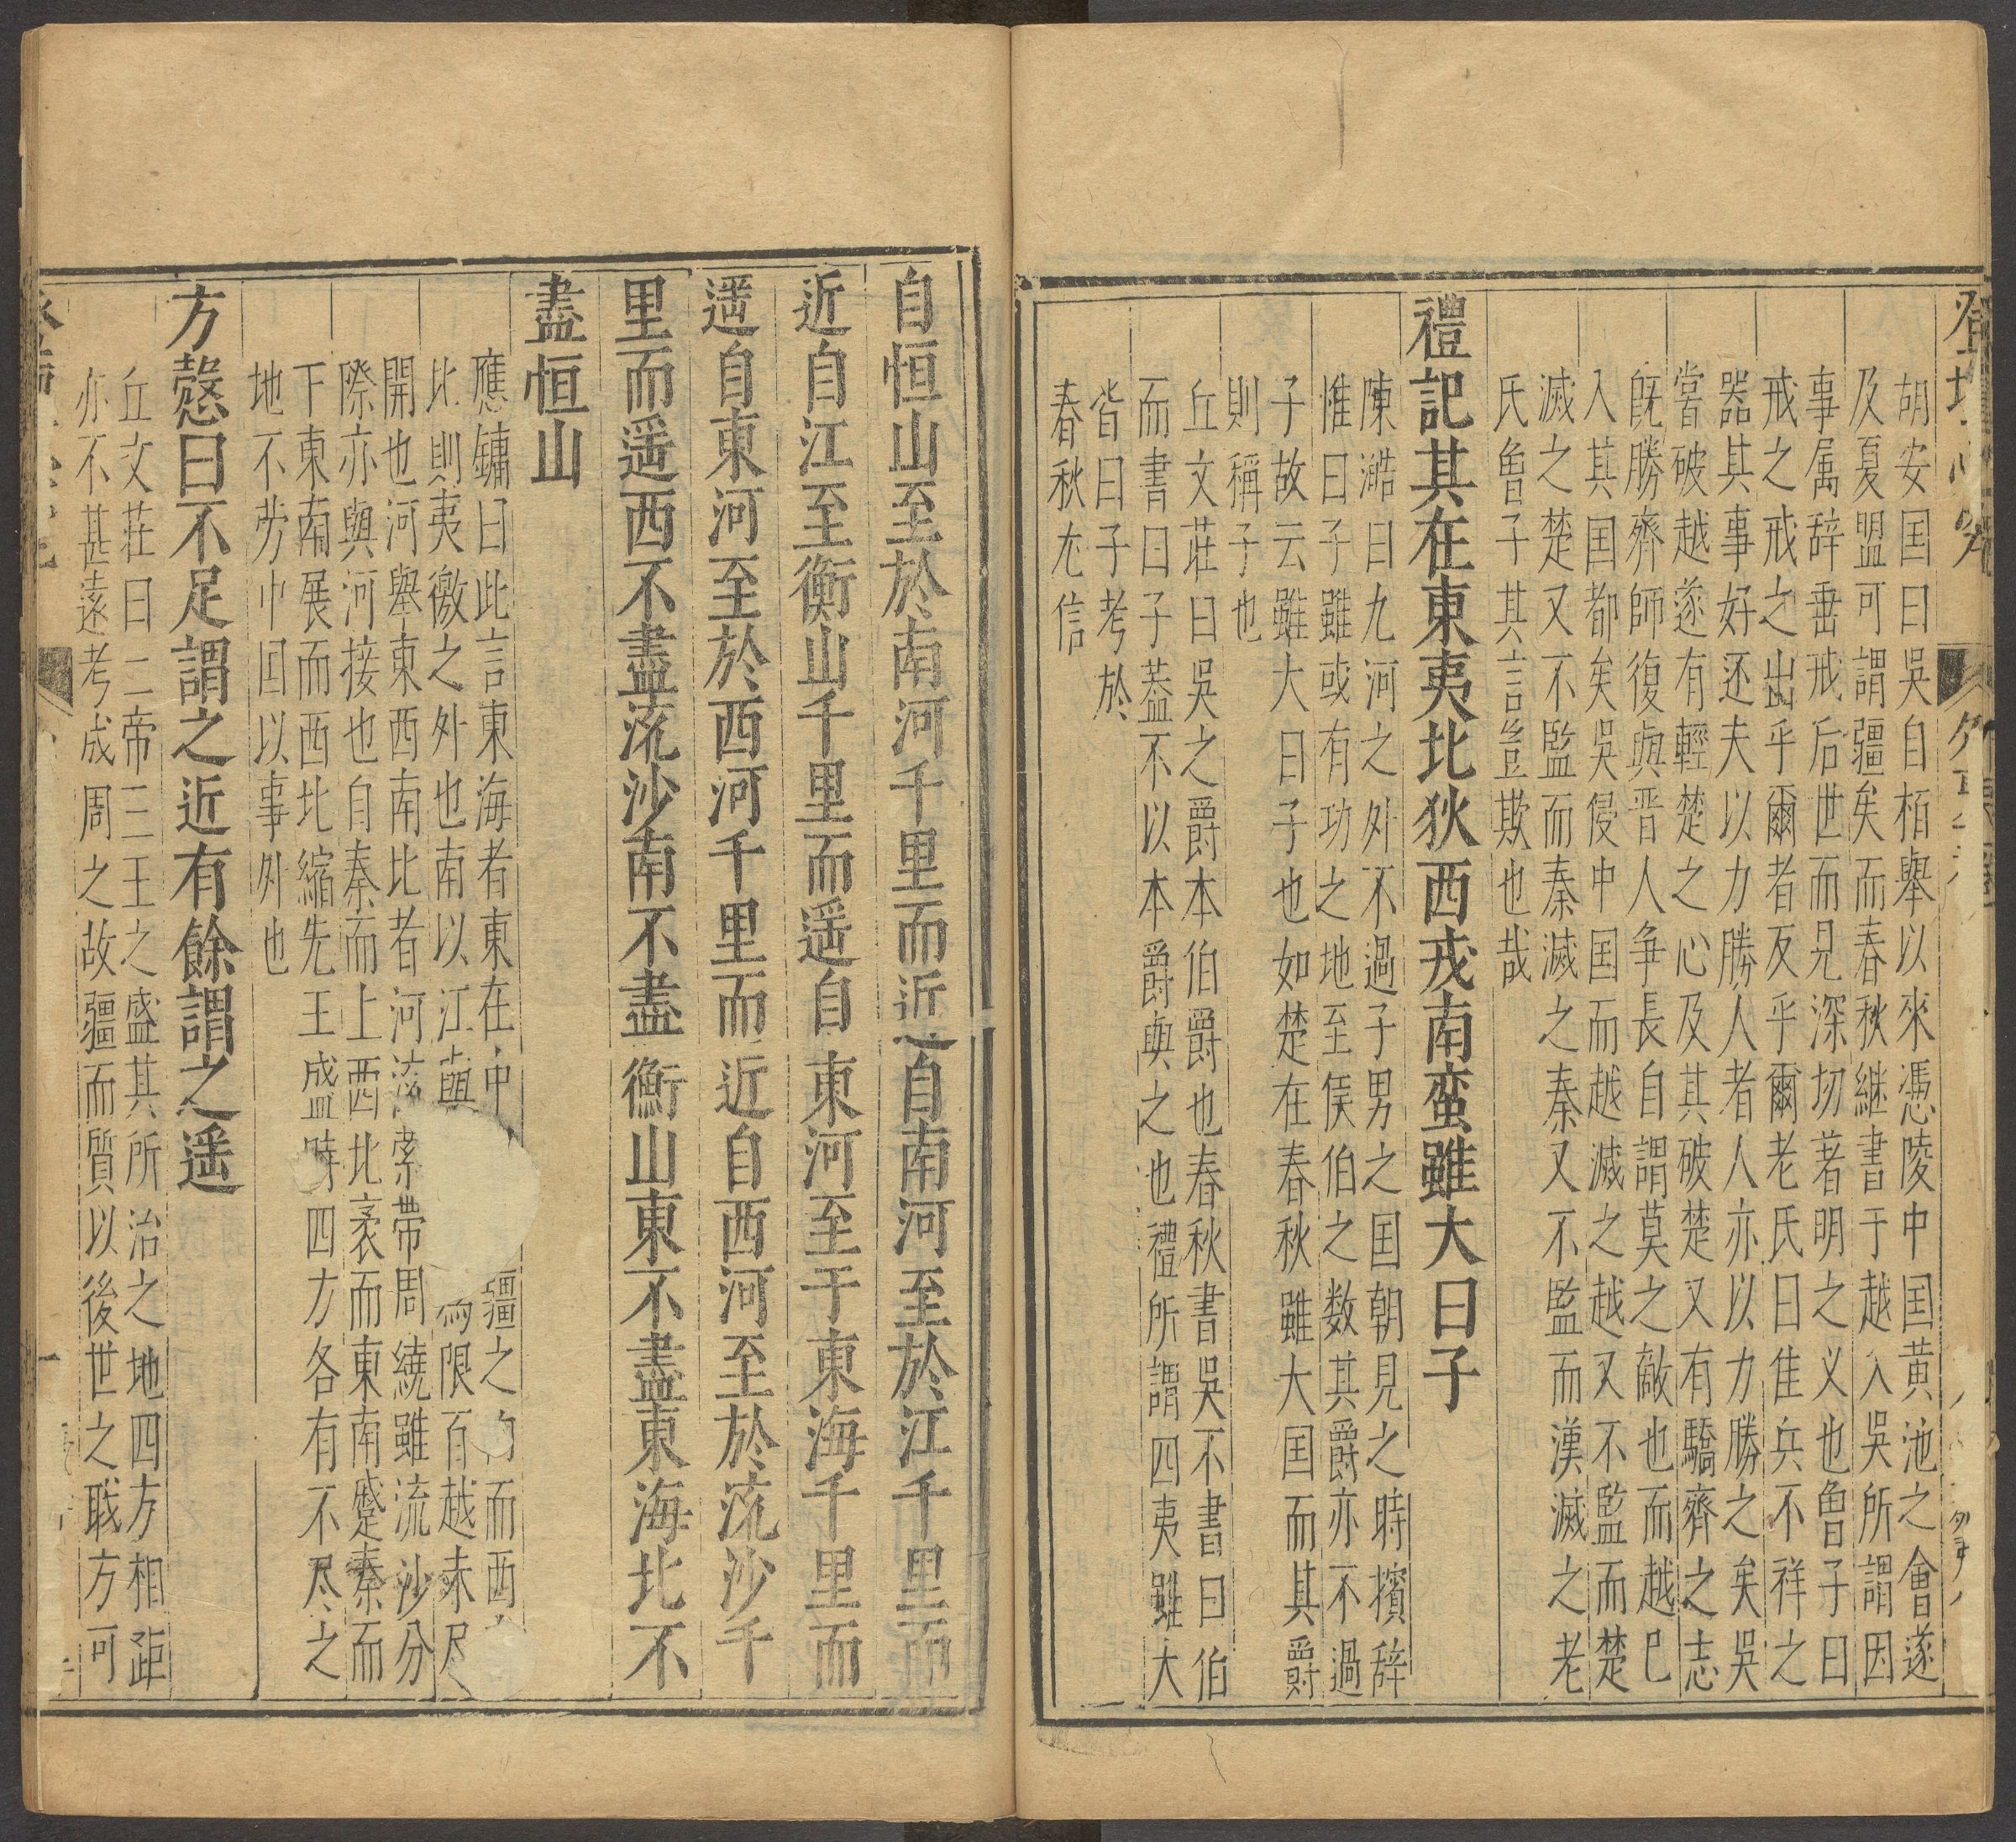 胡安国曰吳自栢舉以來憑陵中国黄池之會遂
及夏盟可謂疆矣而春秋継書于越入吳所謂因
事属辞垂戒后世而見深切著明之义也曾子曰
戒之戒之出乎爾者反乎爾老氏曰佳兵不祥之
器其事好还夫以力勝人者人亦以力勝之矣吳
嘗破越遂有輕楚之心及其破楚又有驕齊之志
旣勝齊師復與晋人争長自謂莫之敵也而越已
入其国都矣吳侵中国而越滅之越又不監而楚
滅之楚又不監而秦滅之秦又不監而漢滅之老
氏曾子其言豈欺也哉
禮記其在東夷北狄西戎南蛮雖大曰子
陳澔曰九河之外不過子男之国朝見之時擯辞
惟曰子雖或有功之地至侯伯之数其爵亦不過
子故云雖大曰子也如楚在春秋雖大国而其爵
則稱子也
丘文荘曰吳之爵本伯爵也春秋書吳不書曰伯
而書曰子葢不以本爵與之也禮所謂四夷雖大
皆曰子考於
春秋尤信
自恒山至於南河千里而近自南河至於江千里而
近自江至衡山千里而遥自東河至于東海千里而
遥自東河至於西河千里而近自西河至於流沙千
里而遥西不盡流沙南不盡衡山東不盡東海北不
盡恒山
應鏞曰此言東海者東在中疆之而西
比則夷徼之外也南以江與限百越未尽
開也河舉東西南北者河流縈帶周繞雖流沙分
際亦與河接也自秦而上西北袤而東南蹙秦而
下東南展而西北縮先王盛時四方各有不尽之
地不劳中国以事外也
方慤曰不足謂之近有餘謂之遥
丘文荘曰二帝三王之盛其所治之地四方相距
亦不甚遠考成周之故疆而質以後世之職方可